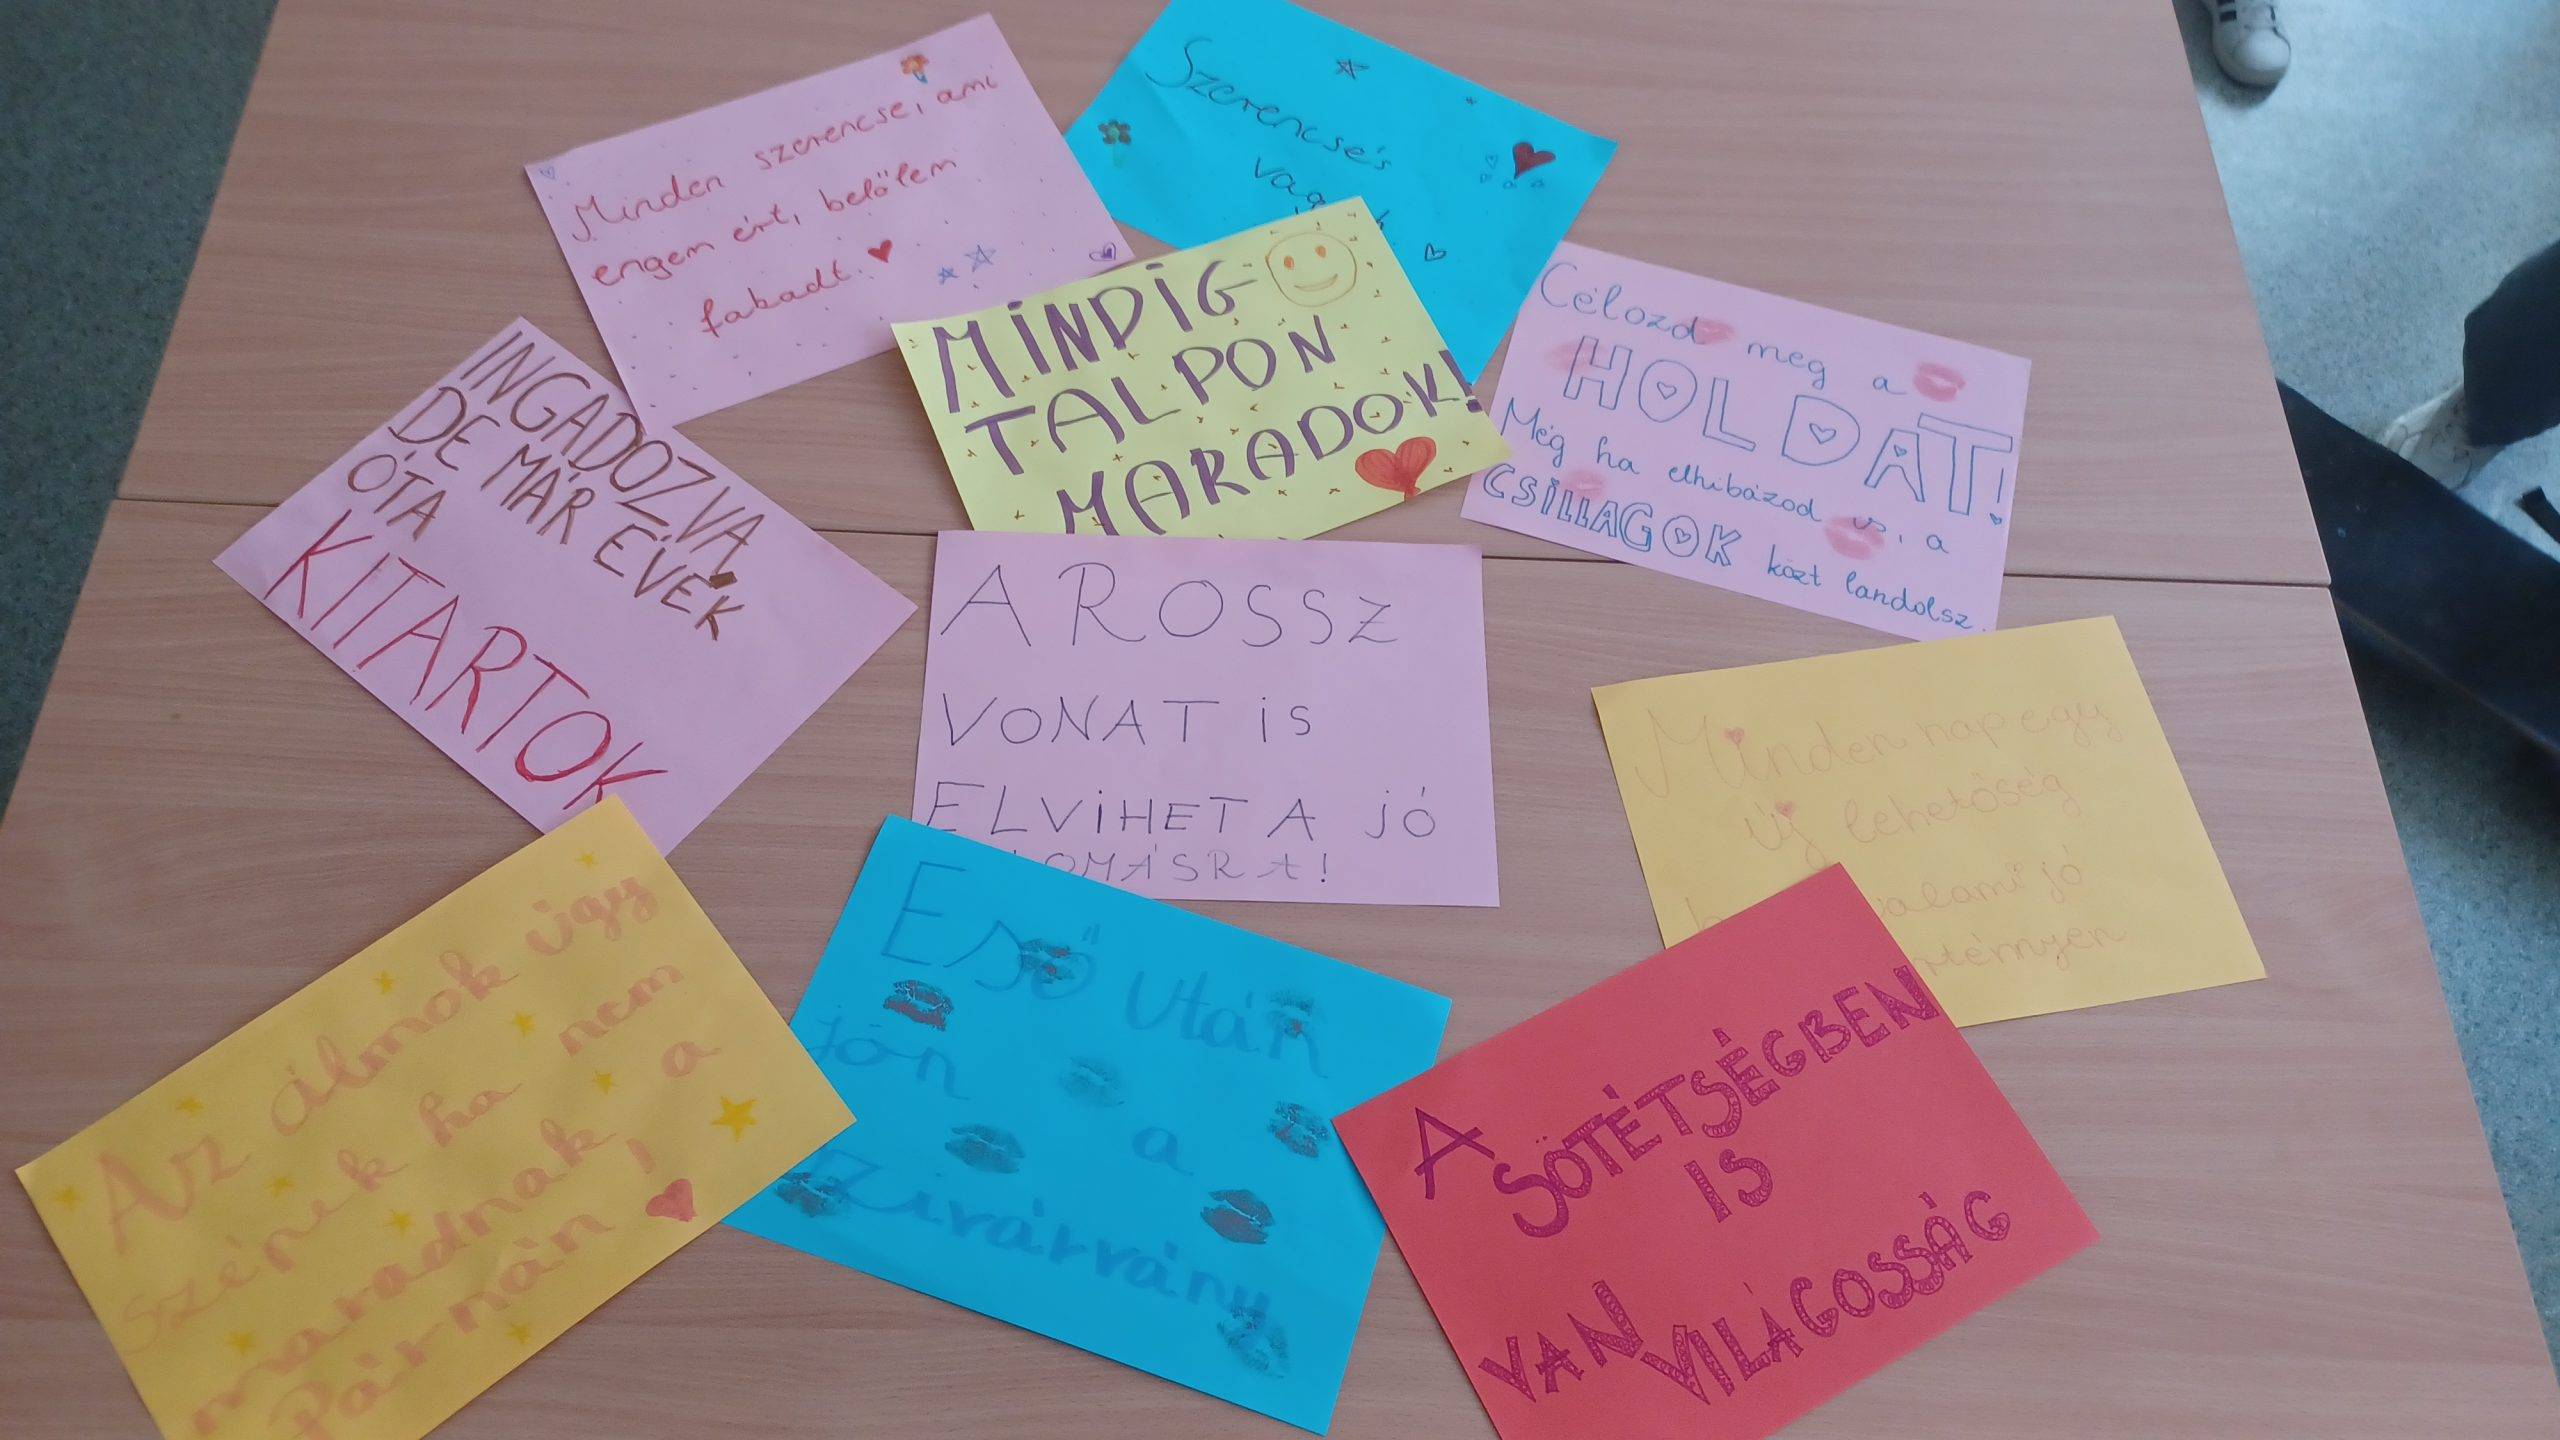 Minden szerencse, ami
engem ért, belőlem
fakadt.
Szerencsés
MINDIG
TALPON
MARADOK!
Célozd meg a
HOLDAT!
Még ha elhibázod is, a
CSILLAGOK közt landolsz.
INGADOZVA
DE MÁR ÉVEK
ÓTA
KITARTOK
A ROSSZ
VONAT IS
ELVIHET A JÓ
OMÁSRA!
Minden nap egy
új lehetőség
valami jó
Az álmok úgy
szépek ha nem
maradnak a
Párnán!
Eső után
jön a
szivárvány
A
SÖTÉTSÉGBEN
IS
VAN
VILÁGOSSÁG